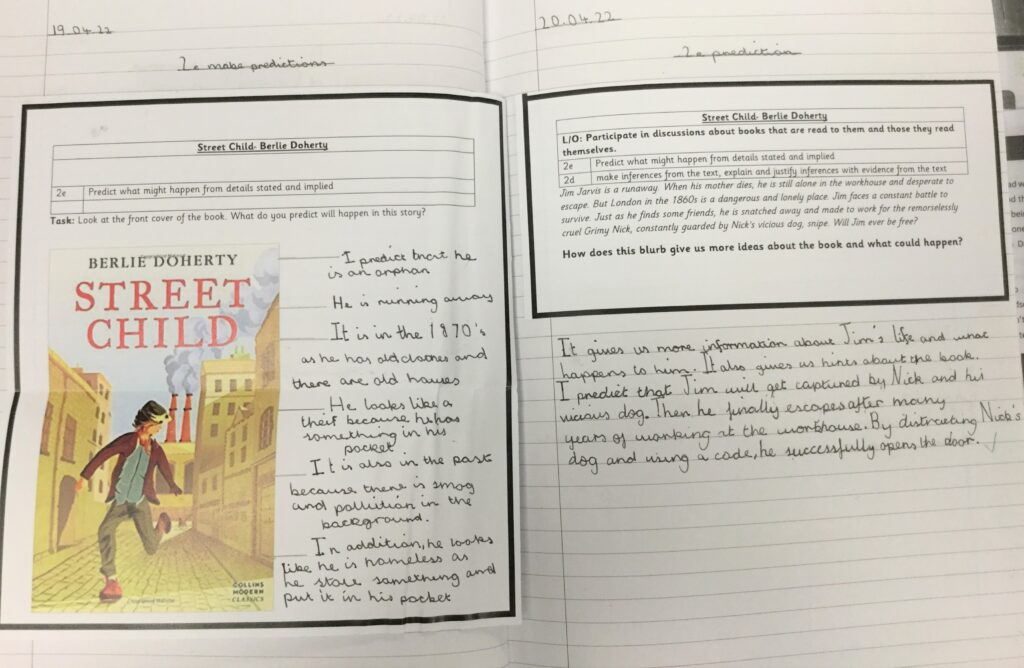 19.04.22
2e make predictions
Street Child- Berlie Doherty
2e Predict what might happen from details stated and implied
Task: Look at the front cover of the book. What do you predict will happen in this story?
BERLIE DOHERTY
STREET
CHILD
COLLINS
MODERN
CLASSICS
I predict that he
is an orphan
He is running away
It is in the 1870's
as he has old clothes and
there are old houses
He looks like a
theif because he has
something in his
pocket
It is also in the past
because there is smog
and pollution in the
background.
In addition, he looks
like he is homeless as
he stole something and
put it in his pocket
20.04.22
2e prediction
Street Child- Berlie Doherty
L/O: Participate in discussions about books that are read to them and those they read
themselves.
2e Predict what might happen from details stated and implied
2d make inferences from the text, explain and justify inferences with evidence from the text
Jim Jarvis is a runaway. When his mother dies, he is still alone in the workhouse and desperate to
escape. But London in the 1860s is a dangerous and lonely place. Jim faces a constant battle to
survive. Just as he finds some friends, he is snatched away and made to work for the remorselessly
cruel Grimy Nick, constantly guarded by Nick's vicious dog, snipe. Will Jim ever be free?
How does this blurb give us more ideas about the book and what could happen?
It gives us more information about Jim's life and what
happens to him. It also gives us hints about the book.
I predict that Jim will get captured by Nick and his
vicious dog. Then he finally escapes after many
years of working at the workhouse. By distracting Nick's
dog and using a code, he successfully opens the door.